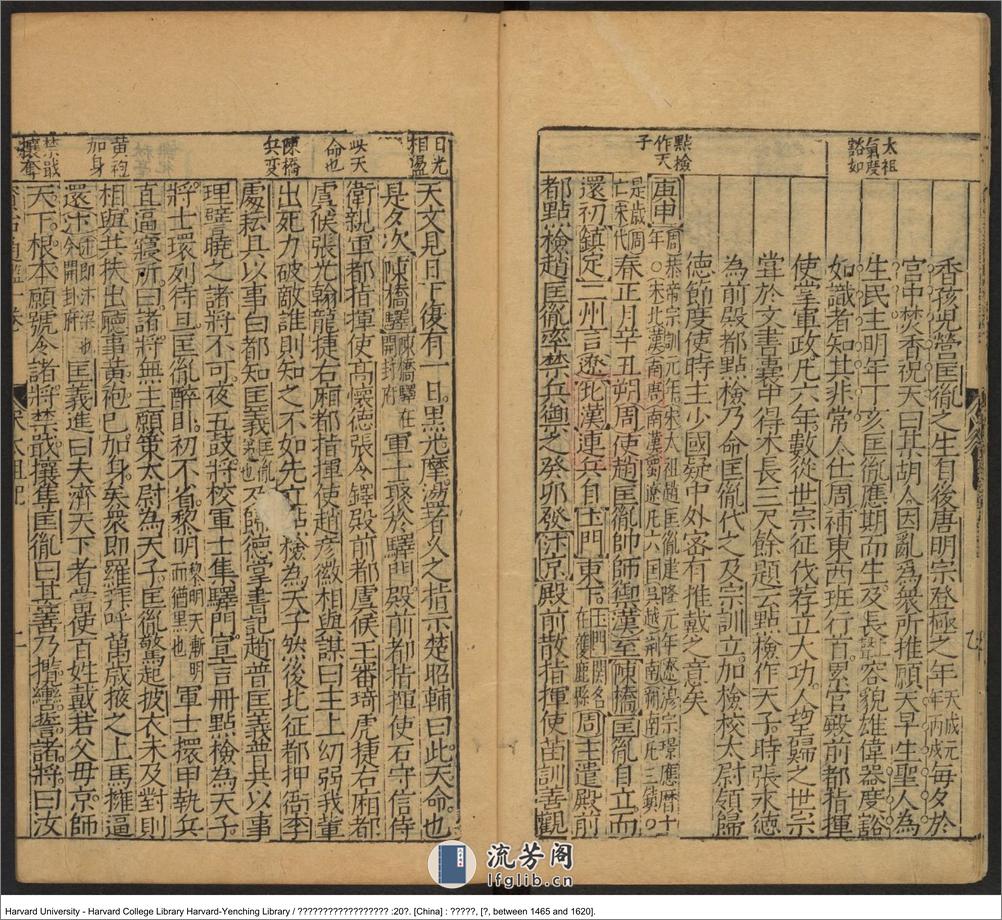 太祖
氣度
豁如
香孩兒營匡胤之生有後唐明宗登極之年天成元年丙戌每夕於
宮中焚香祝天曰某胡人因亂為衆所推願天早生聖人為
生民主明年丁亥匡胤應期而生及長上聲容貌雄偉器度豁
如識者知其非常人仕周補東西班行首累官殿前都指揮
使掌軍政凡六年數從世宗征伐荐立大功人望歸之世宗
嘗於文書囊中得木長三尺餘題云點檢作天子時張永德
為前殿都點檢乃命匡胤代之及宗訓立加檢校太尉領歸
德節度使時主少國疑中外密有推戴之意矣
點檢
作天
子
庚申周恭帝宗訓元年宋太祖趙匡胤建隆元年遼穆宗景應曆十年○宋北漢南唐南漢蜀遼凡六国吳越荊南湖南凡三鎮○是歲周亡宋代春正月辛丑朔周使趙匡胤帥師禦漢至陳橋匡胤自立而
還初鎮定二州言遼北漢連兵自土門東下土門關名在獲鹿縣周主遣殿前
都點檢趙匡胤率禁兵禦之癸卯發汴京殿前散指揮使苗訓善觀
日光
相盪
天文見日下復有一日黑光摩盪者久之指示楚昭輔曰此天命也
是夕次陳橋驛陳橋驛在開封府軍士聚於驛門殿前都指揮使石守信侍
此天
命也
衛親軍都指揮使高懷德張令鐸殿前都虞候王審琦虎捷右廂都
虞候張光翰龍捷右廂都指揮使趙彥徽相與謀曰主上幼弱我輩
陳橋
兵变
出死力破敵誰則知之不如先立點檢為天子然後北征都押衙李
處耘具以事白都知匡義匡胤弟也及歸德掌書記趙普匡義普共以事
理譬曉之諸將不可夜五鼓將校軍士集驛門宣言冊點檢為天子
將士環列待旦匡胤醉臥初不省黎明黎明天漸明而猶黑也軍士擐甲執兵
直逼寢所曰諸將無主願策太尉為天子匡胤驚起披衣未及對則
黃袍
加身
相與共扶出聽事黃袍已加身矣衆即羅拜呼萬歲掖之上馬擁逼
還汴汴即汴梁今開封府也匡義進曰夫濟天下者當使百姓戴若父母京師
禁戢
攘奪
天下根本願號令諸將禁戢攘奪匡胤曰甚善乃攬轡誓諸將曰汝
宋太祖記
流芳阁
lfglib.cn
Harvard University - Harvard College Library Harvard-Yenching Library / ?????????????????? :20?. [China] : ?????, [?, between 1465 and 1620].